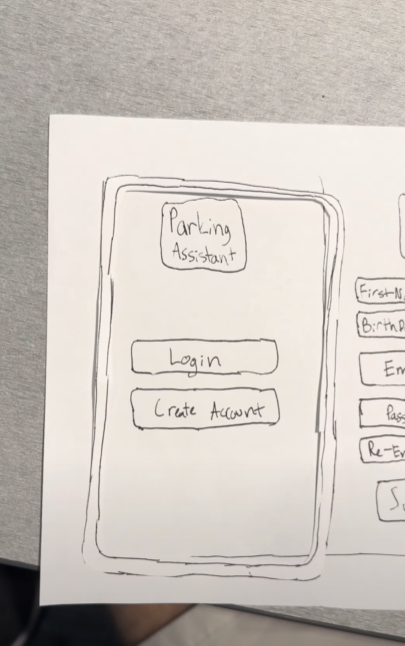 Parking
Assistant
Login
Create Account
First N
Birth
Em
Pass
Re-En
S